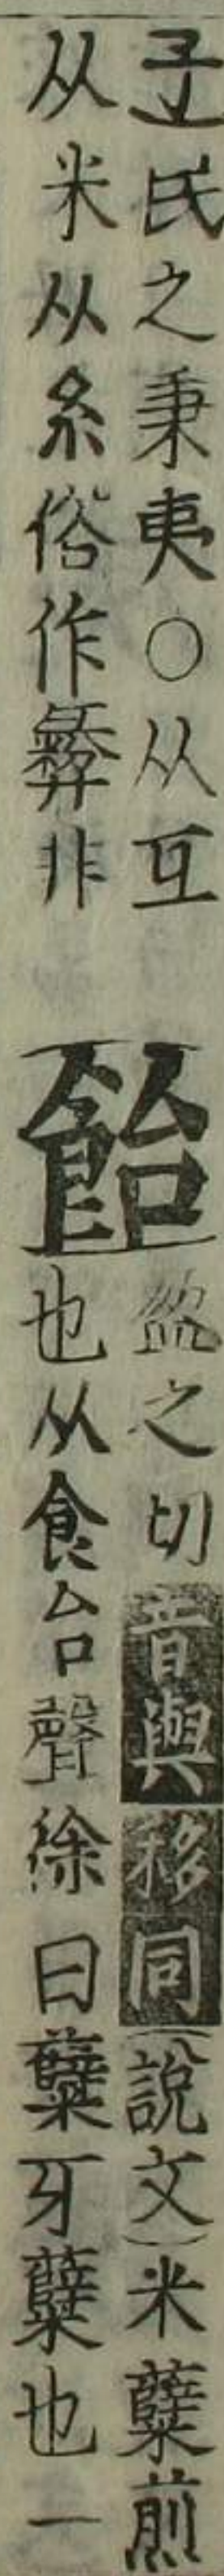 子)民之秉夷○从互
从米从糸俗作彛非
飴
盈之切音與移同(說文)米糱煎
也从食台聲徐曰糱牙糱也一